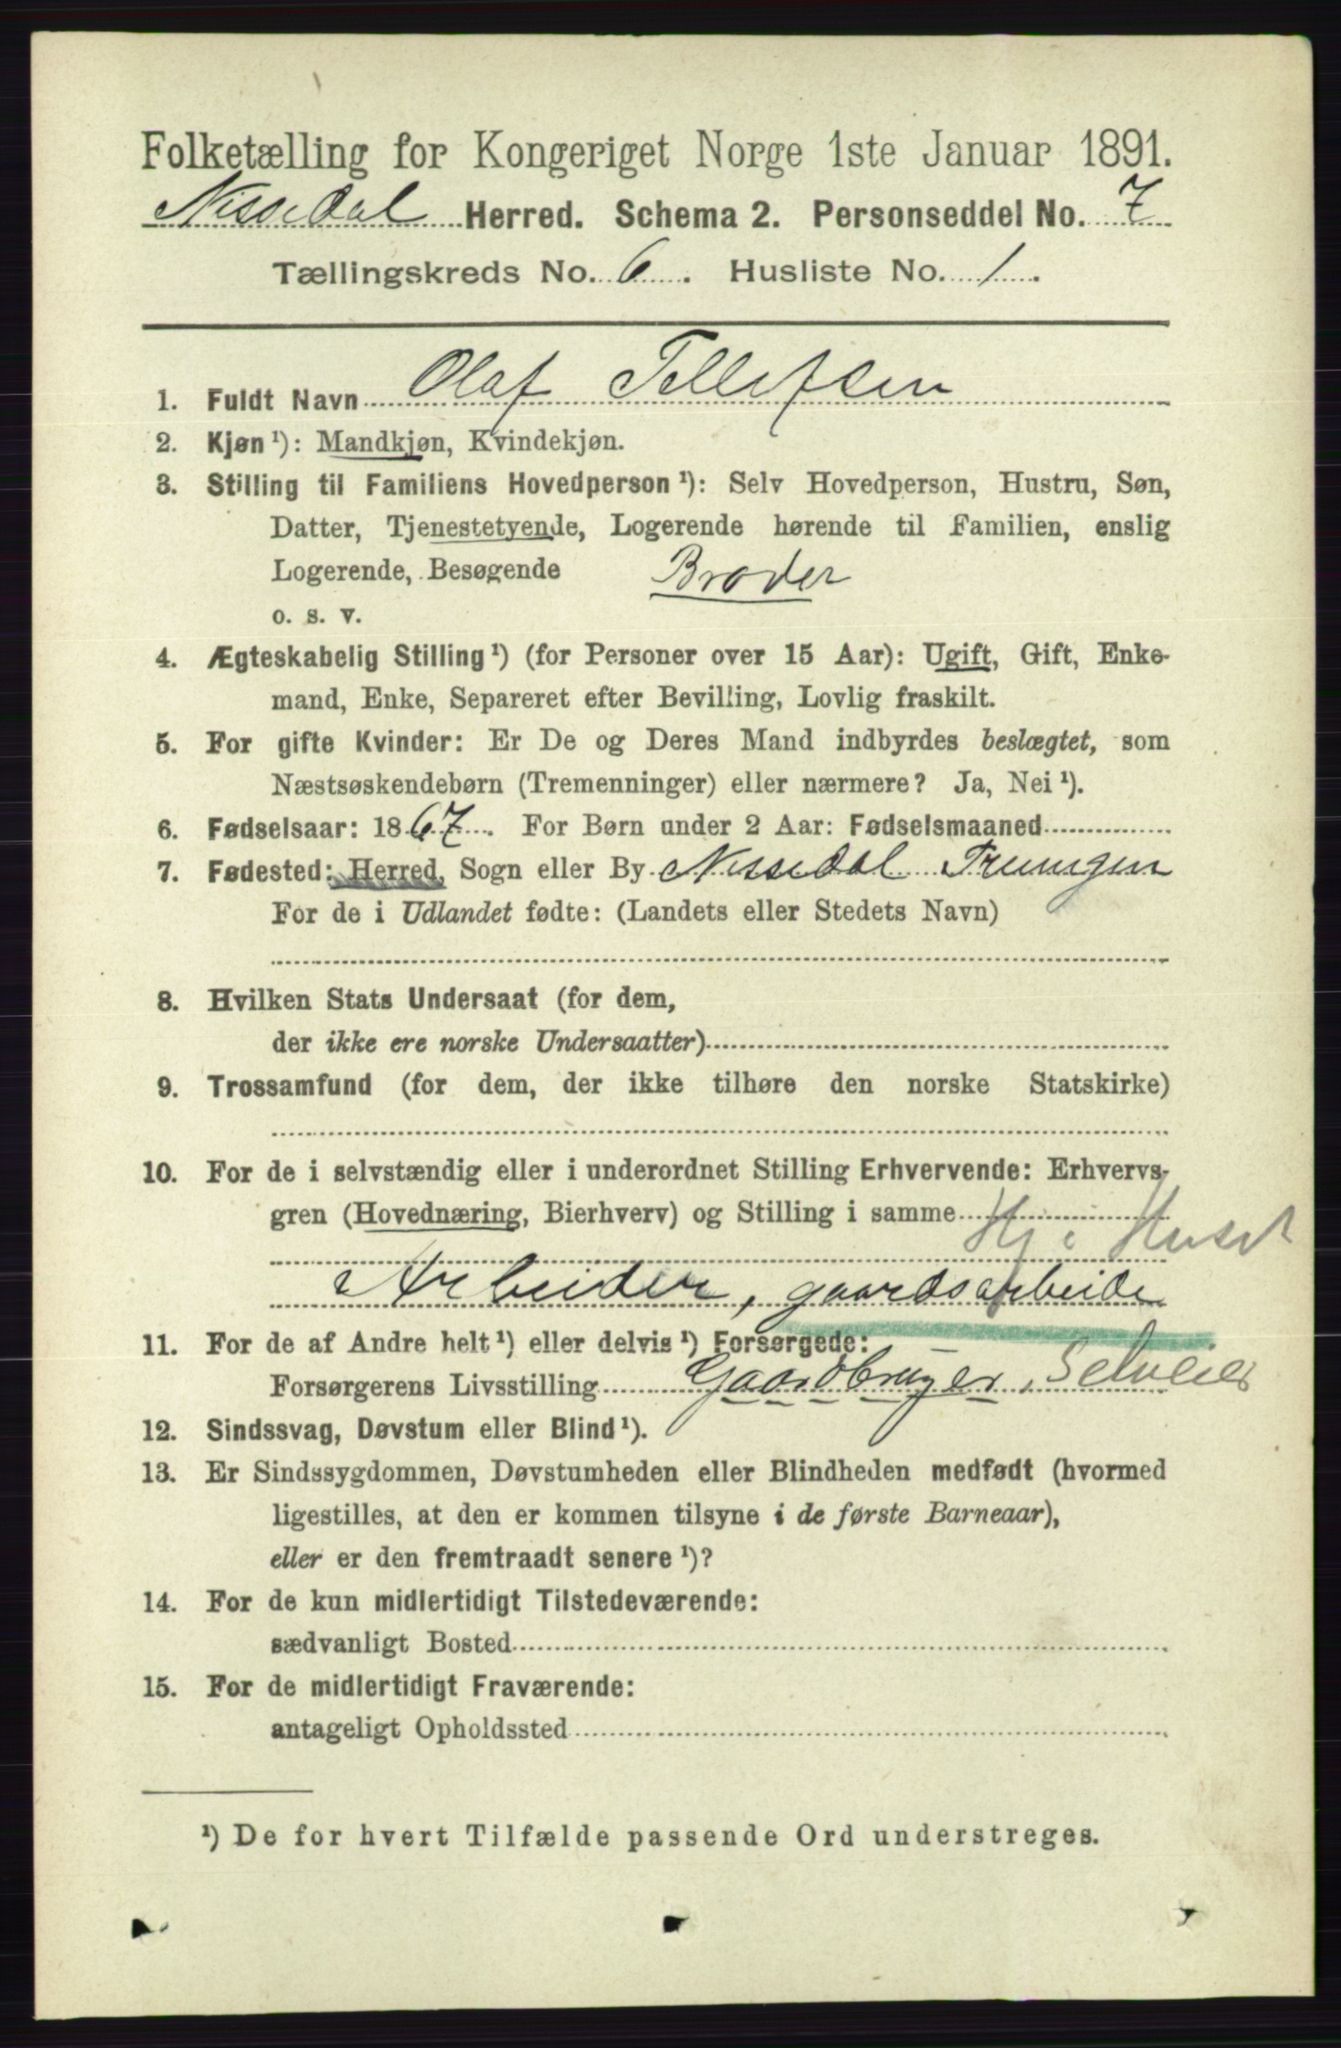 Folketælling for Kongeriget Norge 1ste Januar 1891.
Nissedal Herred. Schema 2. Personseddel No. 7
Tællingskreds No. 6. Husliste No. 1.
1. Fuldt Navn Olaf Tellefsen
2. Kjøn¹): Mandkjøn, Kvindekjøn.
3. Stilling til Familiens Hovedperson¹): Selv Hovedperson, Hustru, Søn,
Datter, Tjenestetyende, Logerende hørende til Familien, enslig
Logerende, Besøgende Broder
o. s. v.
4. Ægteskabelig Stilling¹) (for Personer over 15 Aar): Ugift, Gift, Enke-
mand, Enke, Separeret efter Bevilling, Lovlig fraskilt.
5. For gifte Kvinder: Er De og Deres Mand indbyrdes beslægtet, som
Næstsøskendebørn (Tremenninger) eller nærmere? Ja, Nei¹).
6. Fødselsaar: 1867. For Børn under 2 Aar: Fødselsmaaned
7. Fødested: Herred, Sogn eller By Nissedal Treungen
For de i Udlandet fødte: (Landets eller Stedets Navn)
8. Hvilken Stats Undersaat (for dem,
der ikke ere norske Undersaatter)
9. Trossamfund (for dem, der ikke tilhøre den norske Statskirke)
10. For de i selvstændig eller i underordnet Stilling Erhvervende: Erhvervs-
gren (Hovednæring, Bierhverv) og Stilling i samme Hj. i Huset
Arbeider, gaardsarbeide
11. For de af Andre helt¹) eller delvis¹) Forsørgede:
Forsørgerens Livsstilling Gaardbruger, Selveier
12. Sindssvag, Døvstum eller Blind¹).
13. Er Sindssygdommen, Døvstumheden eller Blindheden medfødt (hvormed
ligestilles, at den er kommen tilsyne i de første Barneaar),
eller er den fremtraadt senere¹)?
14. For de kun midlertidigt Tilstedeværende:
sædvanligt Bosted
15. For de midlertidigt Fraværende:
antageligt Opholdssted
¹) De for hvert Tilfælde passende Ord understreges.